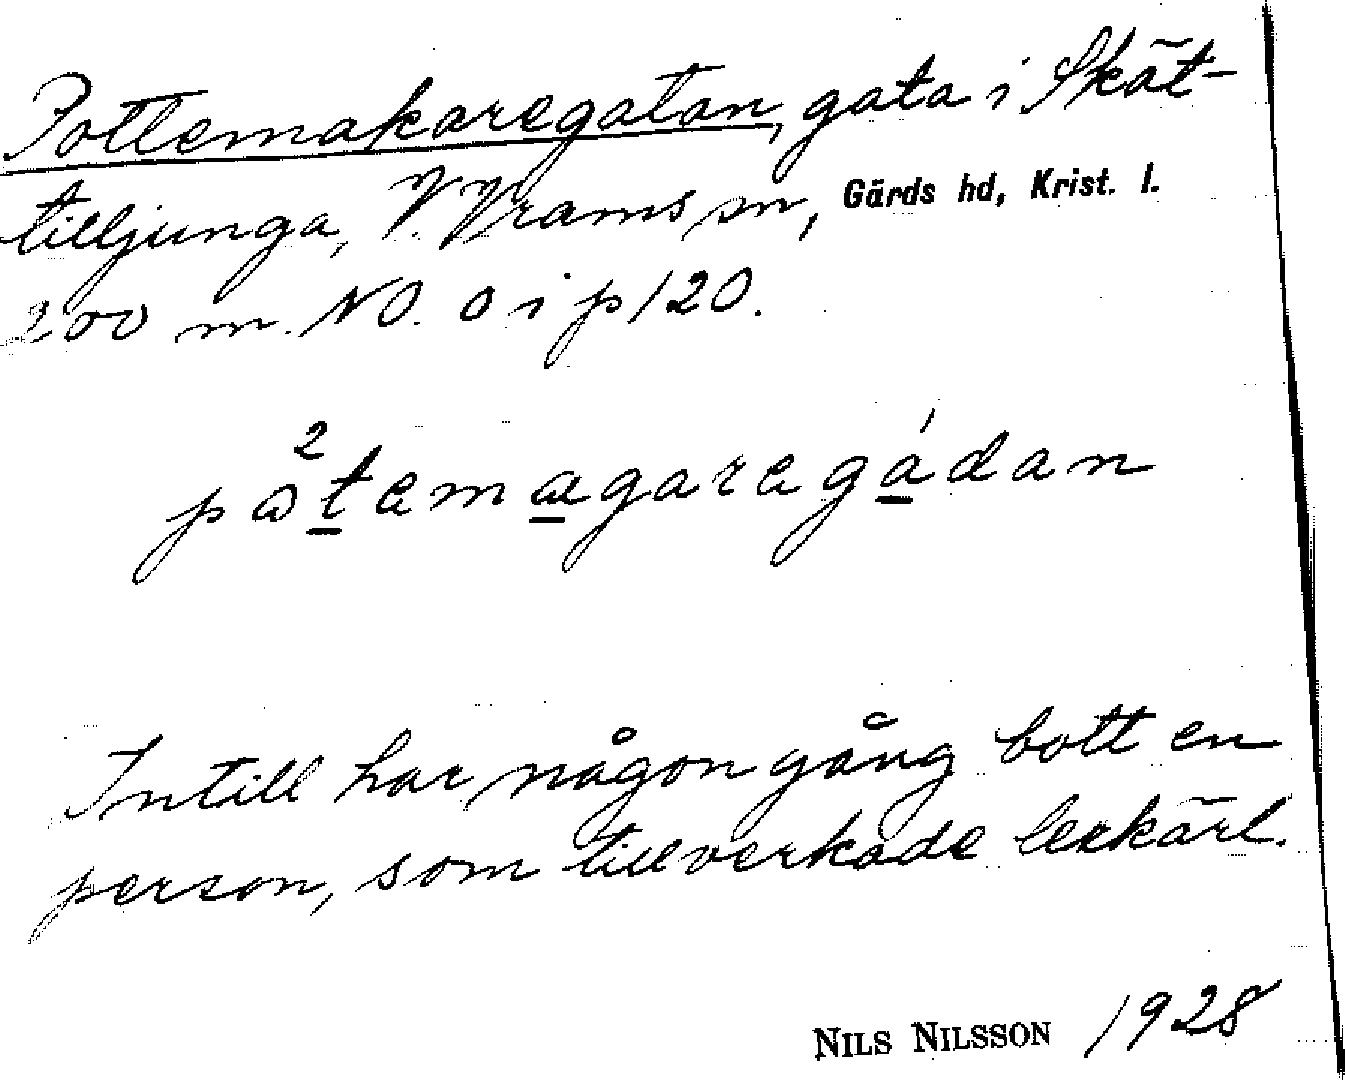 Pottemakaregatan, gata i Skät-
tilljunga, V. Vrams sn, Gärds hd, Krist. l.
200 m. NO. o i p 120.
pa²temagaregádan
Intill har någon gång bott en
person, som tillverkade lerkärl.
NILS NILSSON 1928